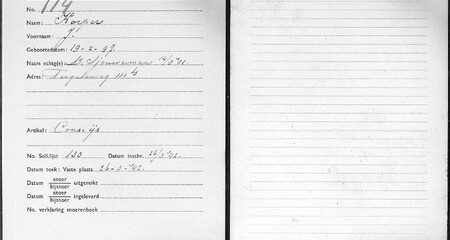 No. 114
Naam: Korper
Voornaam: J.
Geboortedatum: 19-2-97.
Naam echtg(e).:
Adres:
Artikel: Cons. ijs
No. Soll.lijst 133 Datum inschr. 26/3 '42.
Datum toek: Vaste plaats 26-3-'42.
Datum snoer / bijsnoer uitgereikt
Datum snoer / bijsnoer ingeleverd
No. verklaring snoerenboek